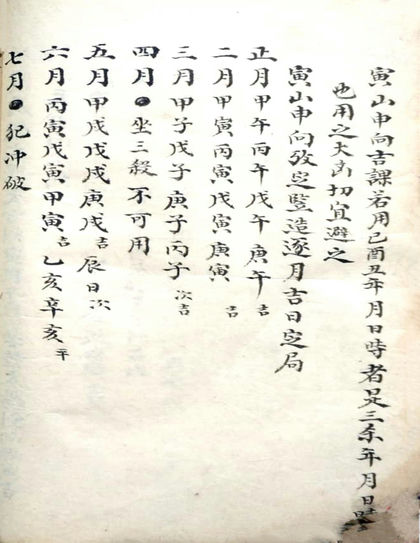 寅山申向吉課若用巳酉丑年月日時者是三杀年月日時
也用之大凶切宜避之
寅山申向攷定竪造逐月吉日定局
正月甲午丙午戊午庚午吉
二月甲寅丙寅戊寅庚寅吉
三月甲子戊子庚子丙子次吉
四月●坐三殺不可用
五月甲戌戊戌庚戌吉辰日次
六月丙寅戊寅甲寅吉乙亥辛亥平
七月●犯冲破